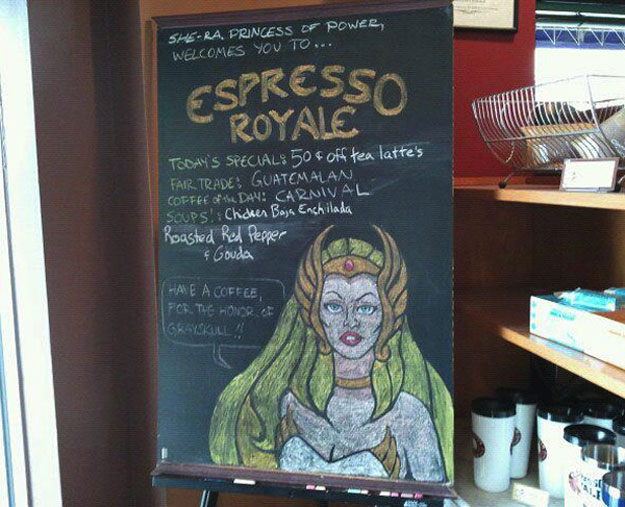 SHE-RA, PRINCESS OF POWER,
WELCOMES YOU TO...
ESPRESSO
ROYALE
TODAY'S SPECIALS: 50¢ off tea latte's
FAIR TRADE: GUATEMALAN
COFFEE of the DAY: CARNIVAL
SOUPS: Chicken Baja Enchilada
Roasted Red Pepper
& Gouda
HAVE A COFFEE,
FOR THE HONOR OF
GRAYSKULL!!